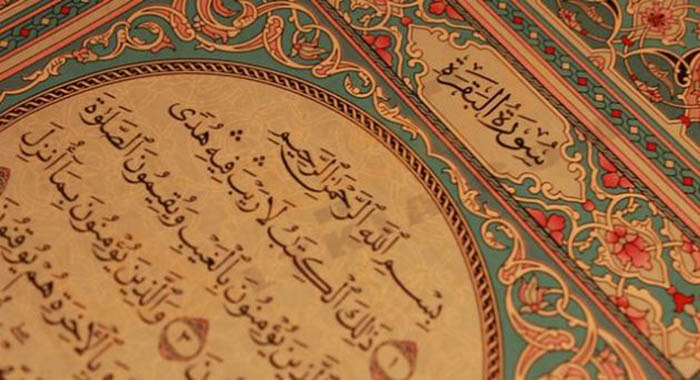 سُورَةُ الْبَقَرَةِ
بِسْمِ ٱللَّهِ ٱلرَّحْمَٰنِ ٱلرَّحِيمِ
١ ذَٰلِكَ ٱلْكِتَٰبُ لَا رَيْبَ ۛ فِيهِ ۛ هُدًى
ٱلَّذِينَ يُؤْمِنُونَ بِٱلْغَيْبِ وَيُقِيمُونَ ٱلصَّلَوٰةَ
٣ وَٱلَّذِينَ يُؤْمِنُونَ بِمَآ أُنزِلَ
وَبِٱلْأَخِرَةِ هُمْ يُوقِنُونَ